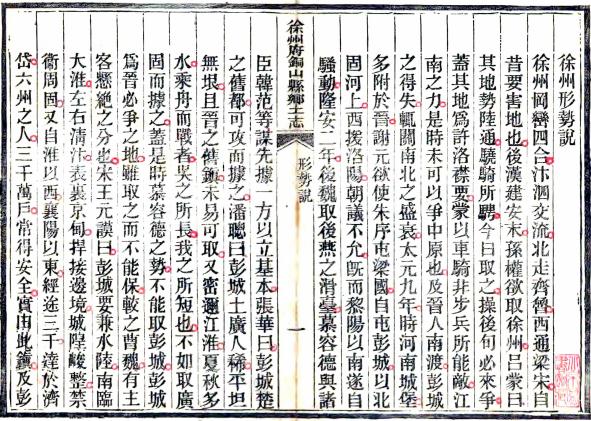 徐州形勢說
徐州岡巒四合汴泗交流北走齊魯西通梁宋自
昔要害地也後漢建安末孫權欲取徐州呂蒙曰
其地勢陸通驍騎所騁今日取之操後旬必來爭
蓋其地爲許洛襟要蒙以車騎非步兵所能敵江
南之力是時未可以爭中原也及晉人南渡彭城
之得失輒關南北之盛衰太元九年時河南城堡
多附於晉謝元欲使朱序屯梁國自屯彭城以北
固河上西援洛陽朝議不允旣而黎陽以南遂自
騷動隆安二年後魏取後燕之滑臺慕容德與諸
徐州府銅山縣鄉土志
形勢說
一
臣韓范等謀先據一方以立基本張華曰彭城楚
之舊都可攻而據之潘聰曰彭城土廣人稀平坦
無垠且晉之舊鎭未易可取又密邇江淮夏秋多
水乘舟而戰者吳之所長我之所短也不如取廣
固而據之蓋是時慕容德之勢不能取彭城彭城
爲晉必爭之地雖取之而不能保較之胄魏有主
客懸絕之分也宋王元謨曰彭城要兼水陸南臨
大淮左右清汴表裏京甸捍接邊境城隍峻整禁
衞周固又自淮以西襄陽以東經途三千達於濟
岱六州之人三千萬戶常得安全實由此鎭及彭